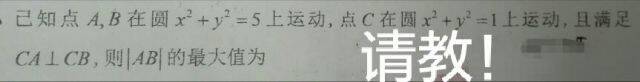 已知点 A,B 在圆 x²+y²=5 上运动,点 C 在圆 x²+y²=1 上运动,且满足
CA⊥CB,则|AB|的最大值为
请教!